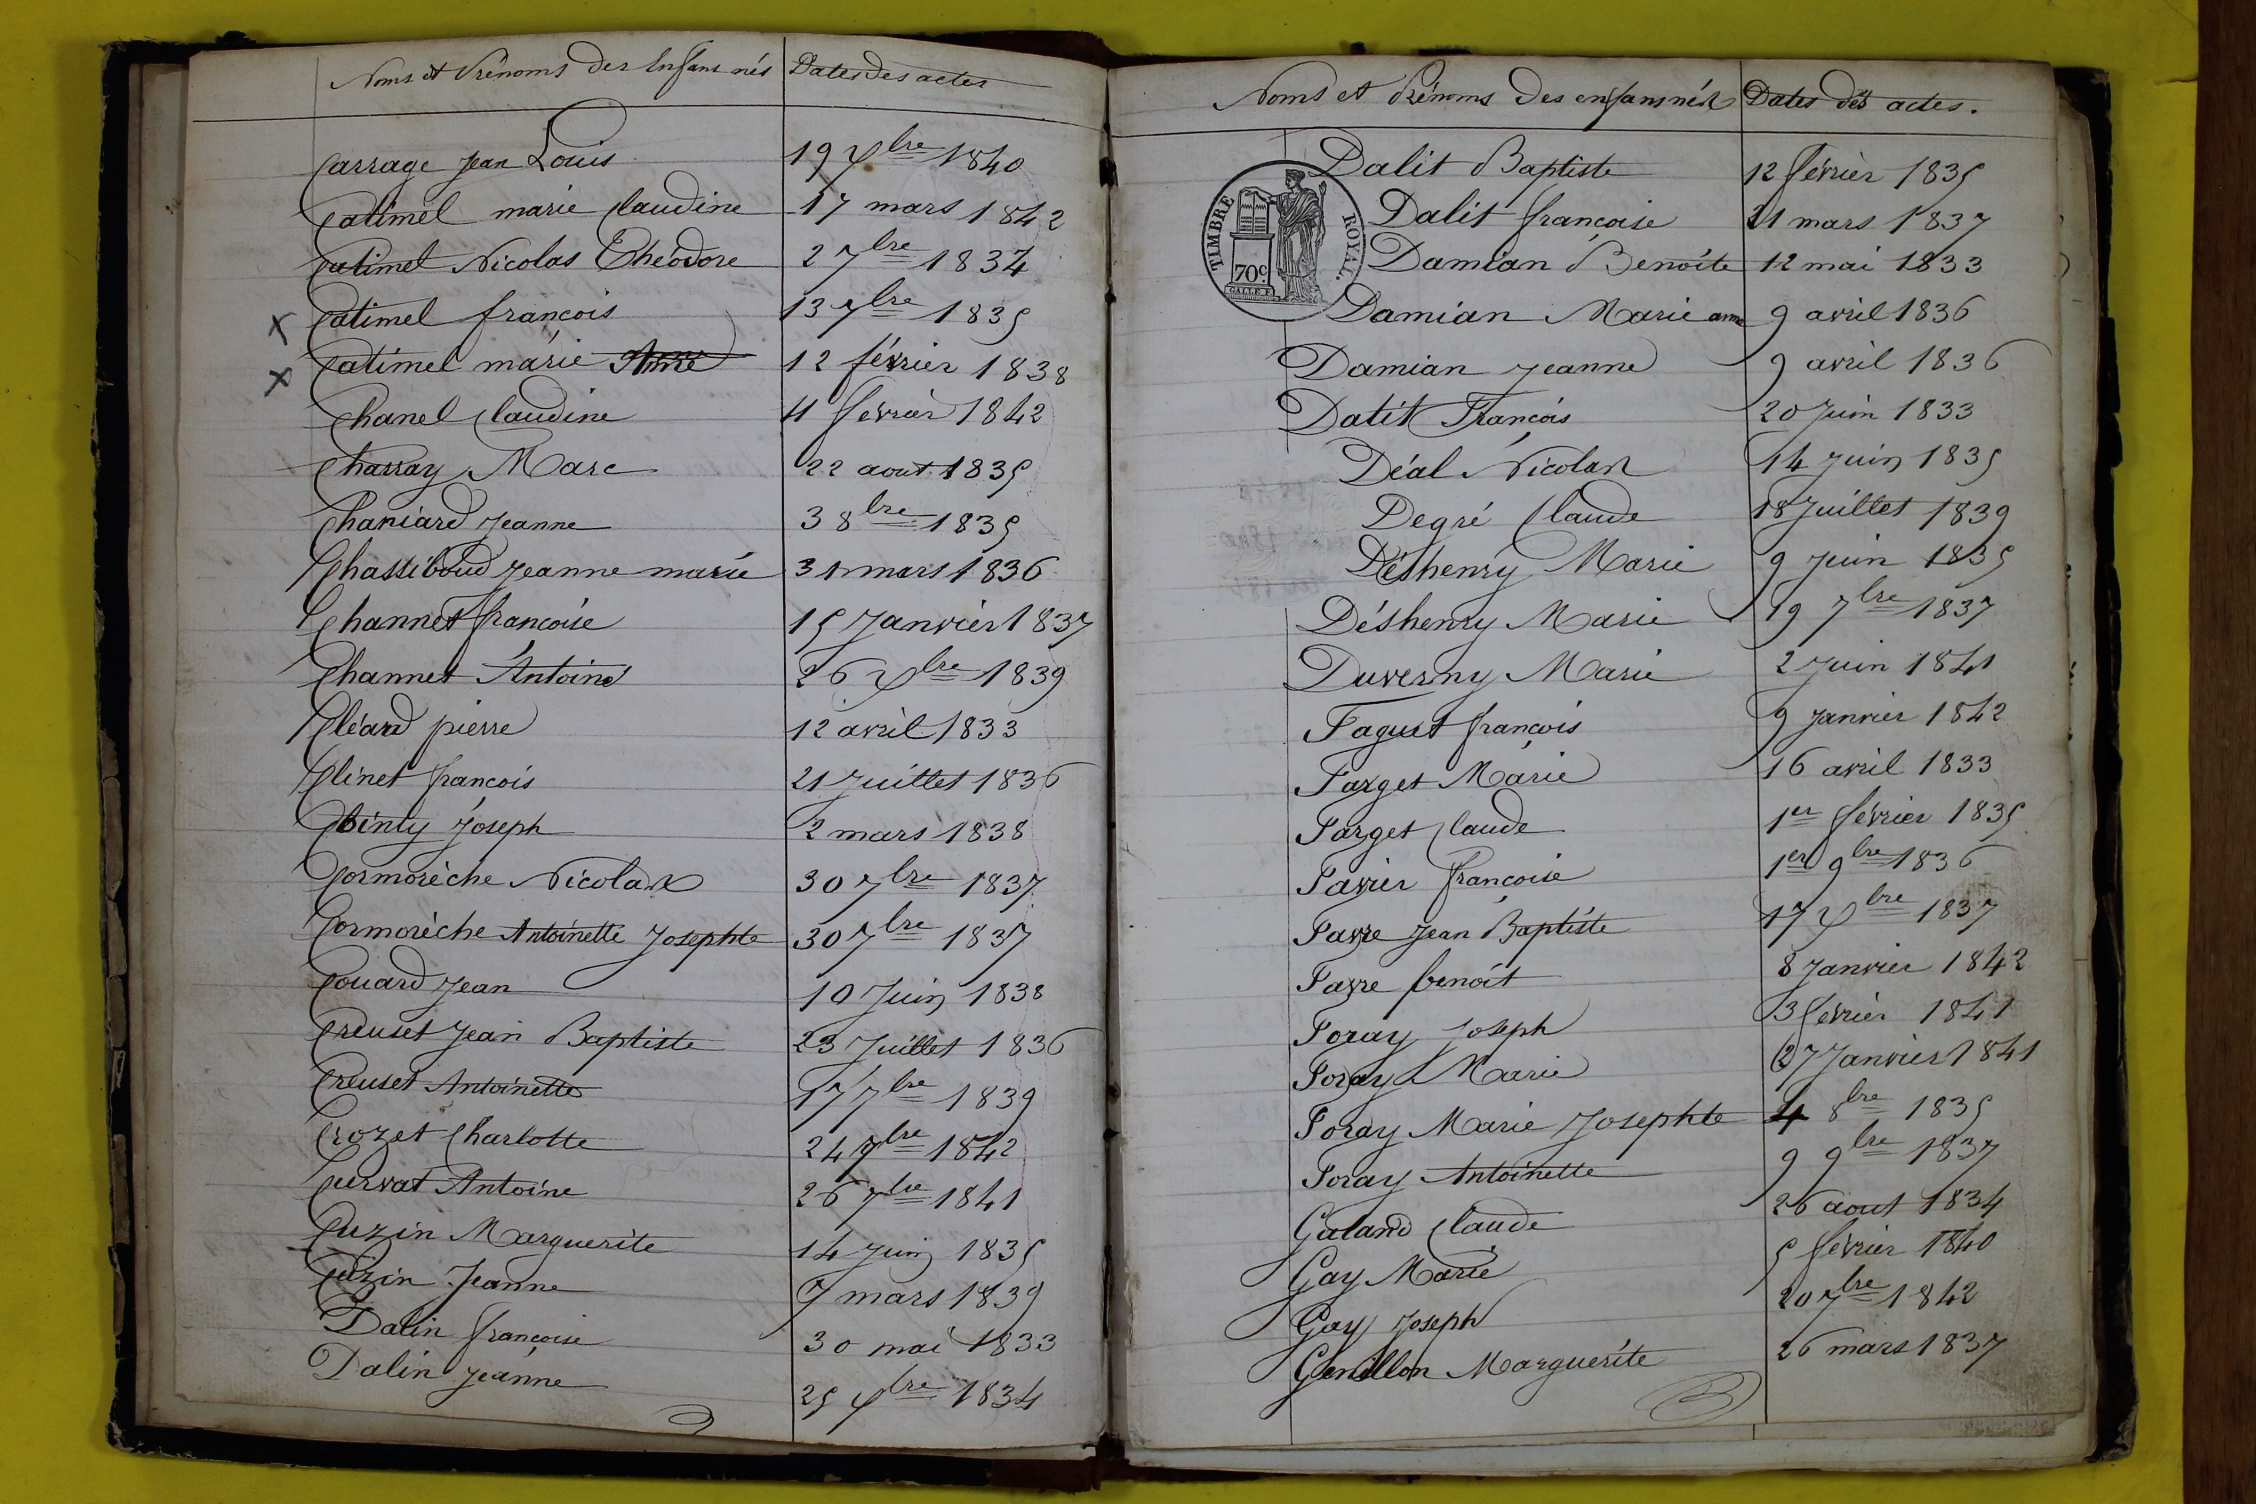 Noms et Prénoms des Enfans nés Dates des actes
Carrage Jean Louis 19 Xbre 1840
Catimel marie Claudine 17 mars 1842
Catimel Nicolas Théodore 2 7bre 1834
x Catimel françois 13 7bre 1835
x Catimel marie Anne 12 février 1838
Chanel Claudine 11 fevrier 1842
Charray Marc 22 aout 1835
Chaniard Jeanne 3 8bre 1835
Chassiboud Jeanne marie 31 mars 1836
Channet françoise 15 Janvier 1837
Channet Antoine 26 Xbre 1839
Cléard pierre 12 avril 1833
Clinet françois 21 Juillet 1836
Joseph 2 mars 1838
Cormorèche Nicolas 30 7bre 1837
Cormorèche Antoinette Josephte 30 7bre 1837
Couard Jean 10 Juin 1838
Creuset Jean Baptiste 23 Juillet 1836
Creuset Antoinette 17 7bre 1839
Crozet Charlotte 24 7bre 1842
Curvat Antoine 26 7bre 1841
Cuzin Marguerite 14 Juin 1835
Cuzin Jeanne 7 mars 1839
Dalin françoise 30 mai 1833
Dalin Jeanne 25 Xbre 1834
Noms et Prénoms des enfans nés Dates des actes.
TIMBRE ROYAL.
70c.
Dalit Baptiste 12 février 1835
Dalit françoise 21 mars 1837
Damian Benoîte 12 mai 1833
Damian Marie anne 9 avril 1836
Damian Jeanne 9 avril 1836
Datit François 20 Juin 1833
Déal Nicolas 14 Juin 1835
Degré Claude 18 Juillet 1839
Déshenry Marie 9 Juin 1835
Déshenry Marie 19 7bre 1837
Duverny Marie 2 Juin 1841
Fagust françois 9 Janvier 1842
Farget Marie 16 avril 1833
Farget Claude 1er février 1835
Favier françoise 1er 9bre 1836
Favre Jean Baptiste 17 Xbre 1837
Favre benoit 8 Janvier 1842
Foray Joseph 3 fevrier 1841
Foray Marie 27 Janvier 1841
Foray Marie Josephte 4 8bre 1835
Foray Antoinette 9 9bre 1837
Galand Claude 26 aout 1834
Gay Marie 5 février 1840
Gay Joseph 20 7bre 1842
Genillon Marguerite 26 mars 1837